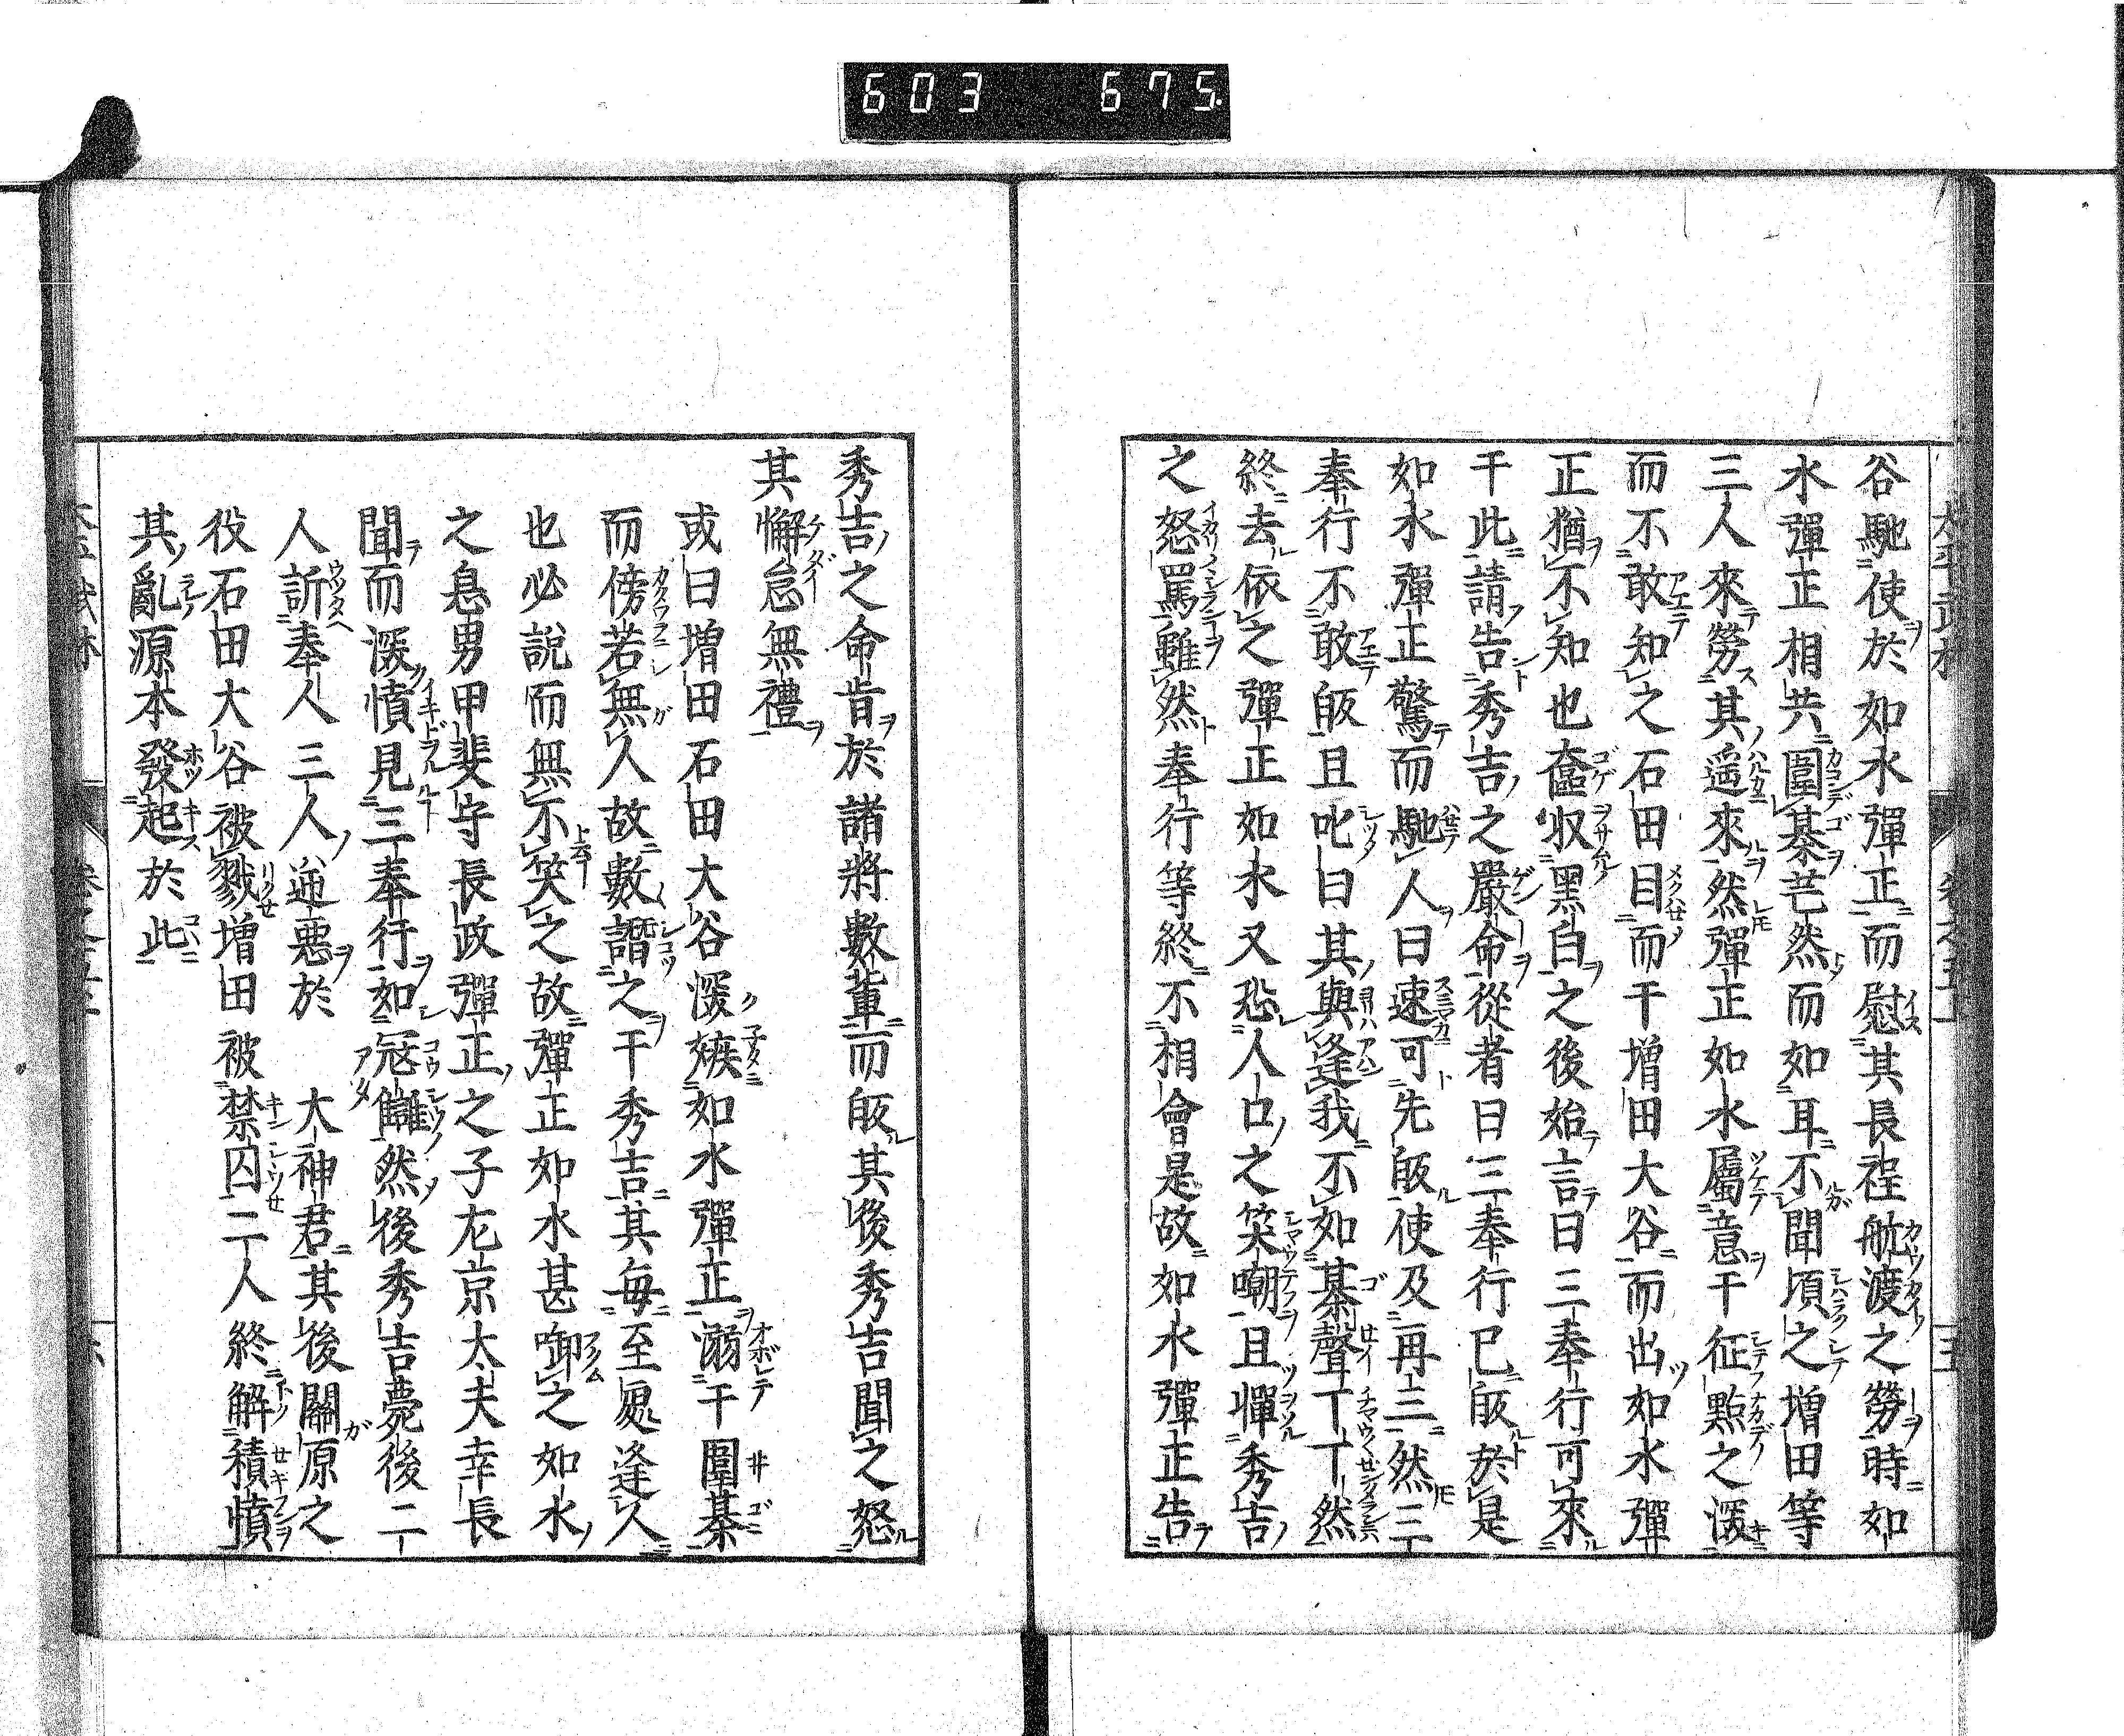 603 675.
谷馳使於如水彈正而慰其長程航渡之勞時如
水彈正相共圍棊芒然而如耳不聞頃之增田等
三人來勞其遥來然彈正如水屬意干征點之深
而不敢知之石田目而干増田大谷而出如水彈
正猶不知也奩収黑白之後始言曰三奉行可來
干此請告秀吉之嚴命從者曰三奉行已皈於是
如水彈正驚而馳人曰速可先皈使及再三然三
奉行不敢皈且叱曰其與逢我不如棊聲丁丁然
終去依之彈正如水又恐人口之笑嘲且憚秀吉
之怒罵雖然奉行等終不相會是故如水彈正告
秀吉之命肯於諸將數輩而皈其後秀吉聞之怒
其懈怠無禮
或曰增田石田大谷深嫉如水彈正溺干圍棊
而傍若無人故數譖之干秀吉其毎至處逢人
也必說而無不笑之故彈正如水甚啣之如水
之息男甲斐守長政彈正之子尨京太夫幸長
聞而深憤見三奉行如冦讎然後秀吉薨後二
人訴奉人三人逆惡於 大神君其後關原之
役石田大谷被戮増田被禁囚二人終解積憤
其亂源本發起於此